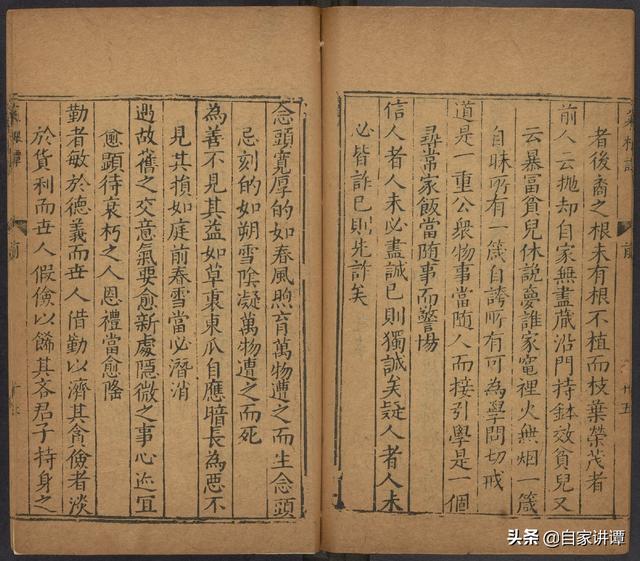 者後裔之根未有根不植而枝葉榮茂者
前人云拋却自家無盡藏沿門持鉢效貧兒又
云暴富貧兒休說夢誰家竈裡火無烟一箴
自昧所有一箴自誇所有可為學問切戒
道是一重公衆物事當隨人而接引學是一個
尋常家飯當隨事而警惕
信人者人未必盡誠己則獨誠矣疑人者人未
必皆詐己則先詐矣
前
廿五
念頭寬厚的如春風煦育萬物遭之而生念頭
忌刻的如朔雪陰凝萬物遭之而死
為善不見其益如草裏東瓜自應暗長為惡不
見其損如庭前春雪當必潛消
遇故舊之交意氣要愈新處隱微之事心迹宜
愈顯待衰朽之人恩禮當愈隆
勤者敏於德義而世人借勤以濟其貪儉者淡
於貨利而世人假儉以飾其吝君子持身之
菜根譚
前
头条 @自家讲谭